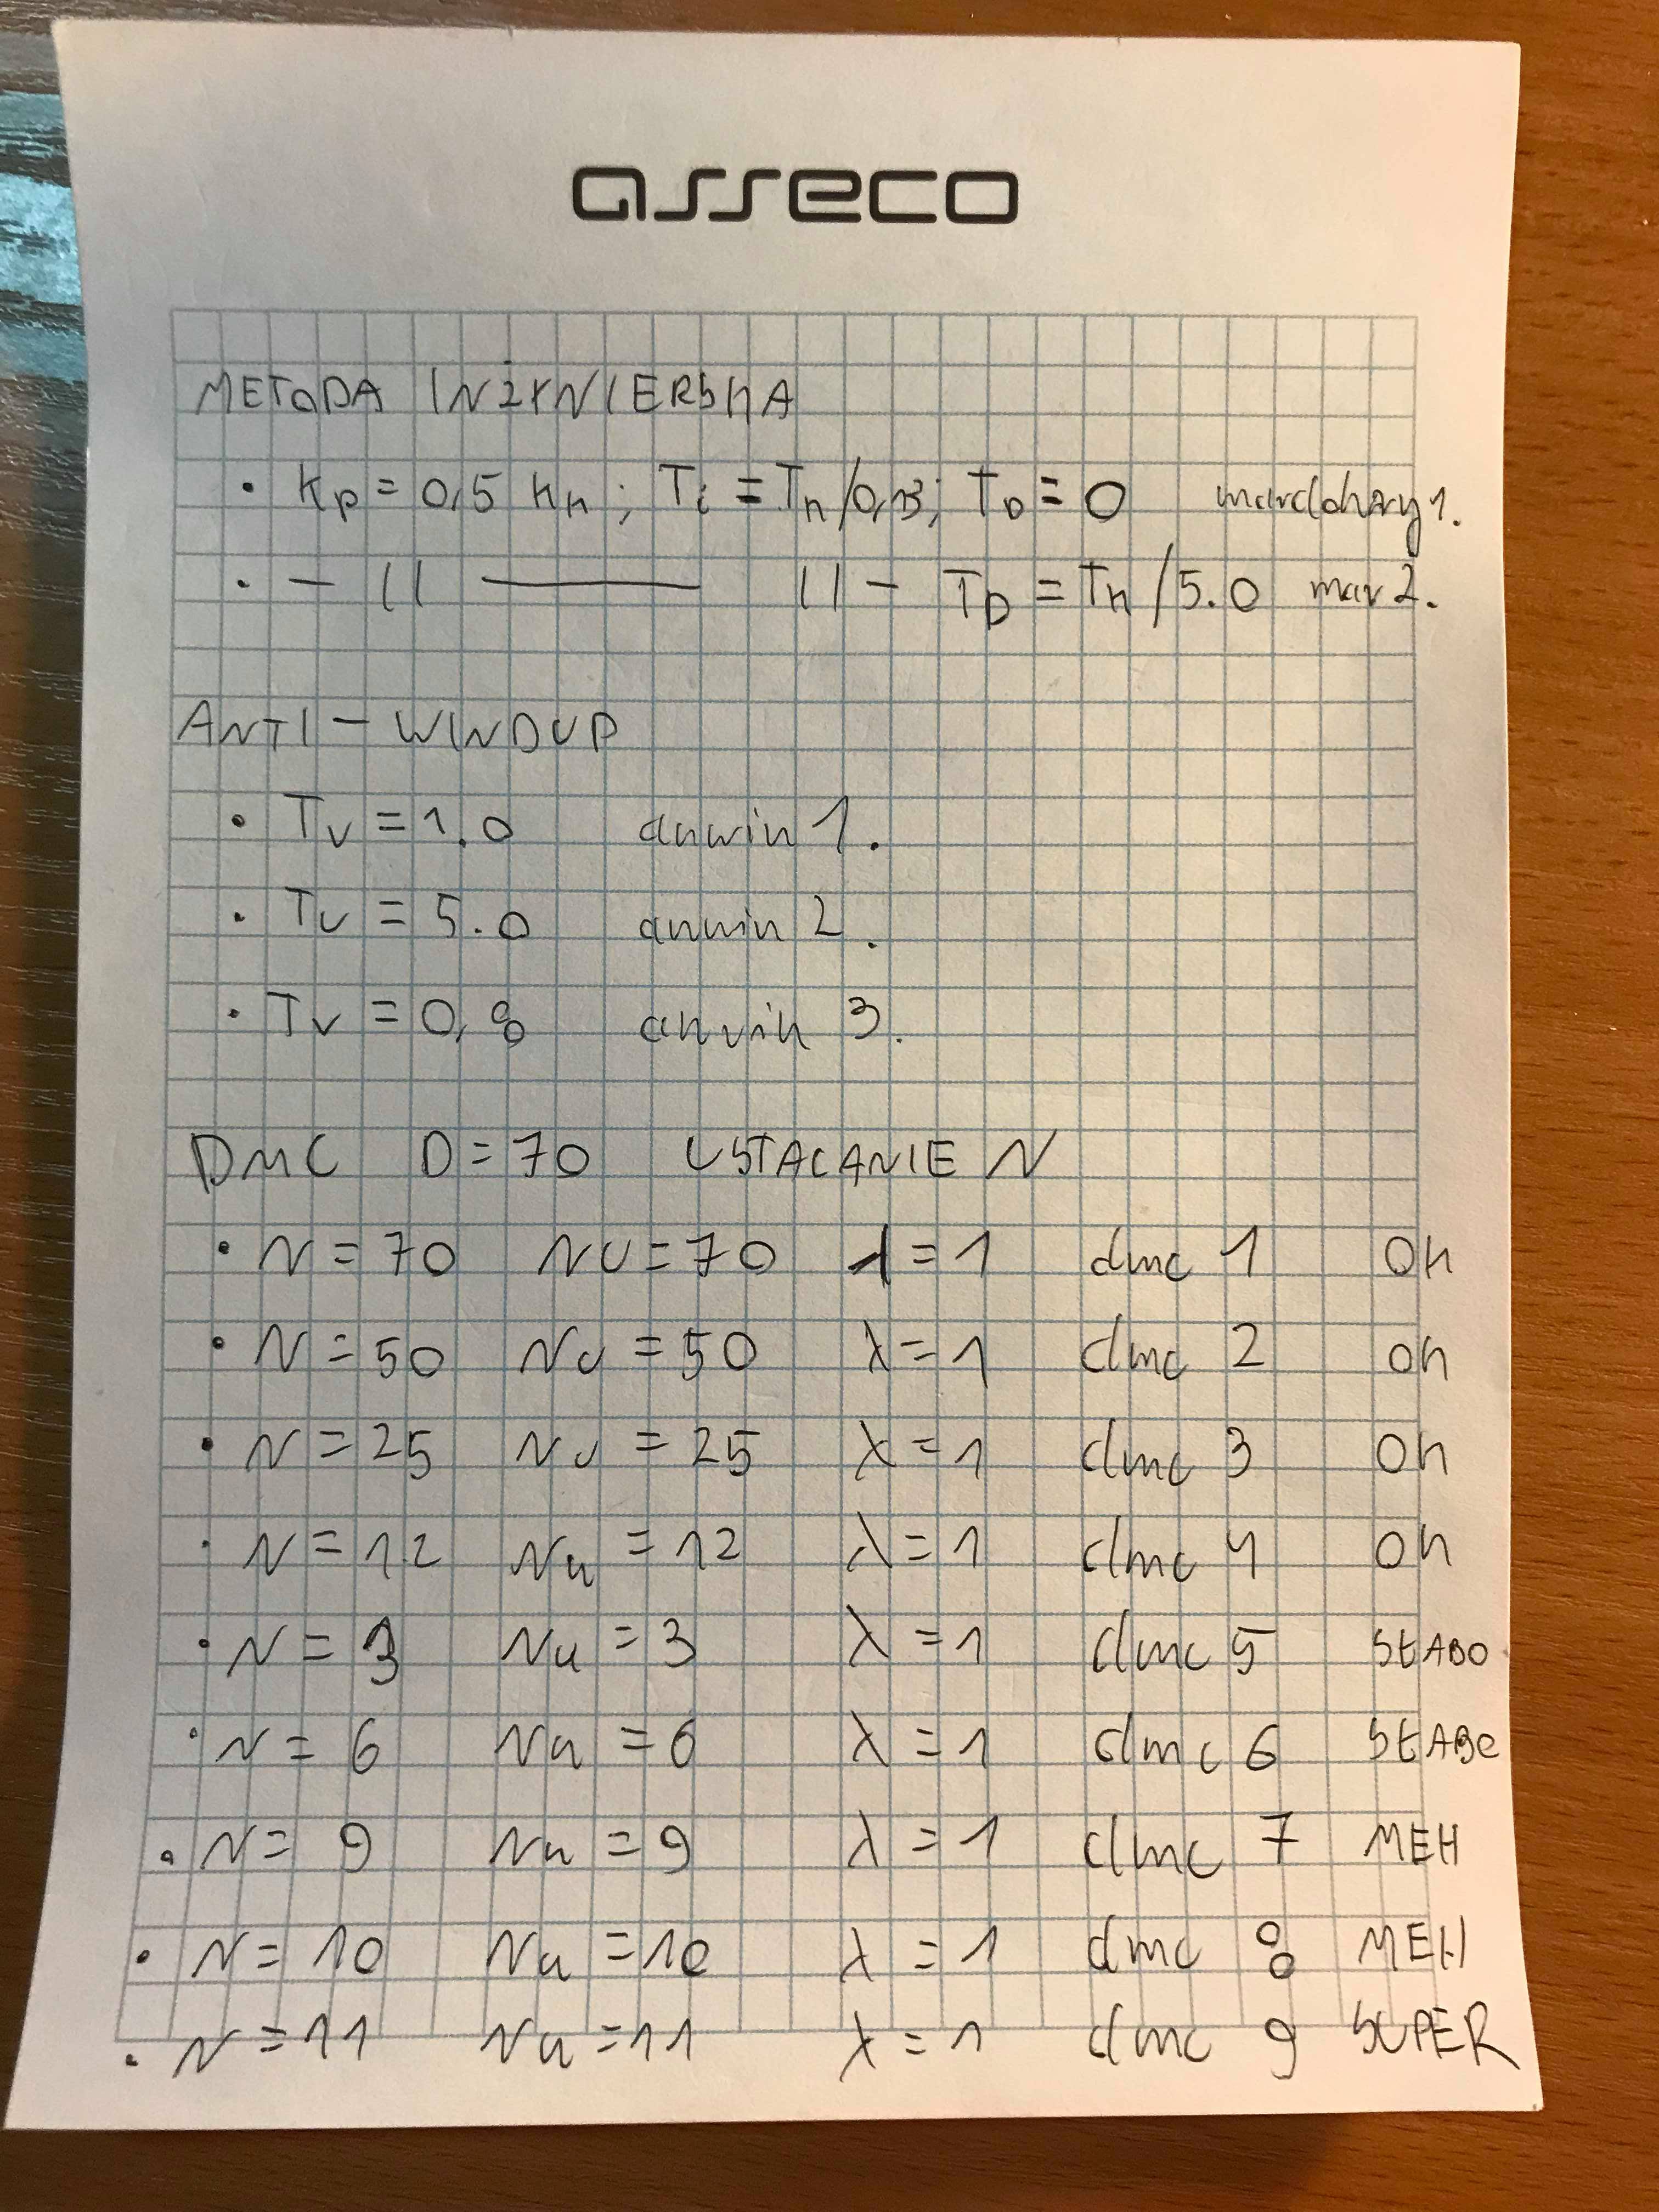 asseco
METODA INŻYNIERSKA
• Kp = 0,5 Kk ; Ti = Tk/0,B; TD = 0 1.
• — 11 ——— 11 — TD = Tk /5.0 mar 2.
ANTI – WINDUP
• Tv = 1.0 anwin 1.
• Tv = 5.0 anwin 2.
• Tv = 0,8 anwin 3.
DMC D = 70 USTALANIE N
• N = 70 NU = 70 λ = 1 dmc 1 OK
• N = 50 Nu = 50 λ = 1 dmc 2 OK
• N = 25 Nu = 25 λ = 1 dmc 3 OK
• N = 12 Nu = 12 λ = 1 dmc 4 OK
• N = 3 Nu = 3 λ = 1 dmc 5 SŁABO
• N = 6 Nu = 6 λ = 1 dmc 6 SŁABO
• N = 9 Nu = 9 λ = 1 dmc 7 MEH
• N = 10 Nu = 10 λ = 1 dmc 8 MEH
• N = 11 Nu = 11 λ = 1 dmc 9 SUPER